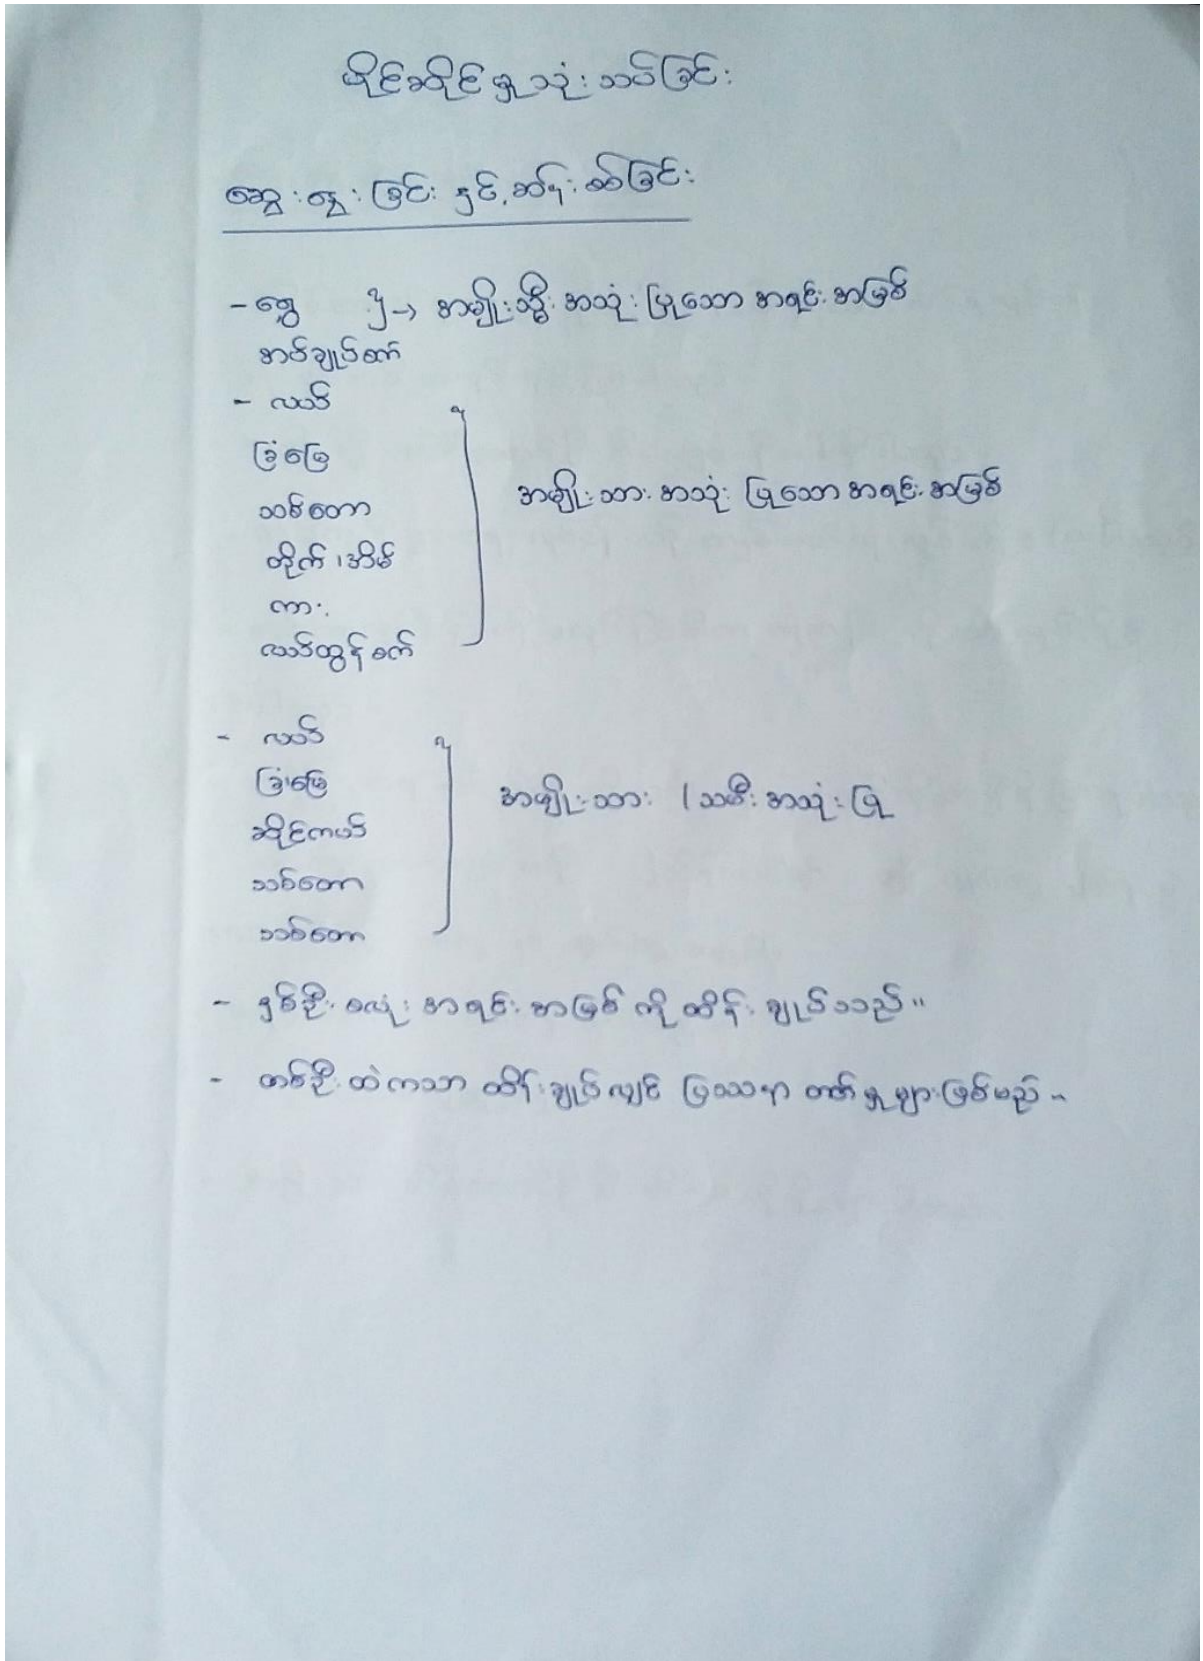 ပိုင်ဆိုင်မှု သုံးသပ်ခြင်း
ဆွေးနွေးခြင်း နှင့် ဆန်းစစ်ခြင်း
- ရွှေ } → အမျိုးသ္မီး အသုံးပြုသော အရင်းအမြစ်
အပ်ချုပ်စက်
- လယ်
ခြံမြေ
သစ်တော
တိုက်၊ အိမ်
ကား
လယ်ထွန်စက်
အမျိုးသား အသုံးပြုသော အရင်းအမြစ်
- လယ်
ခြံမြေ
ဆိုင်ကယ်
သစ်တော
သစ်တော
အမျိုးသား / သမီး အသုံးပြု
- နှစ်ဦးစလုံး အရင်းအမြစ်ကို ထိန်းချုပ်သည်။
- တစ်ဦးထဲကသာ ထိန်းချုပ်လျှင် ပြဿနာ တက်မှုများဖြစ်မည်။